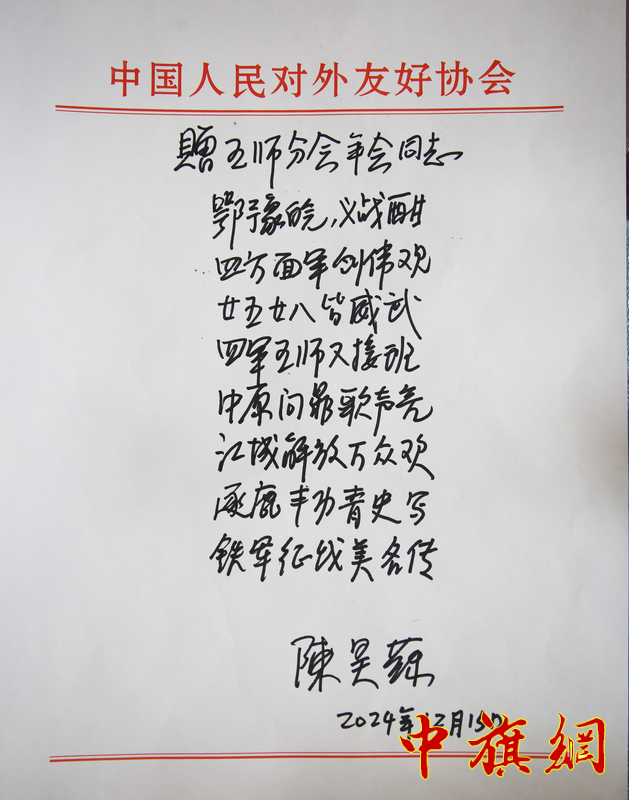 中国人民对外友好协会
贈五师分会年会同志
鄂豫皖，义战酣
四方面军创伟观
廿五廿八皆威武
四军五师又接班
中原问鼎歌声亮
江城解放万众欢
逐鹿丰功青史写
铁军征战美名传
陳昊蘇
2024年12月15日
中旗網